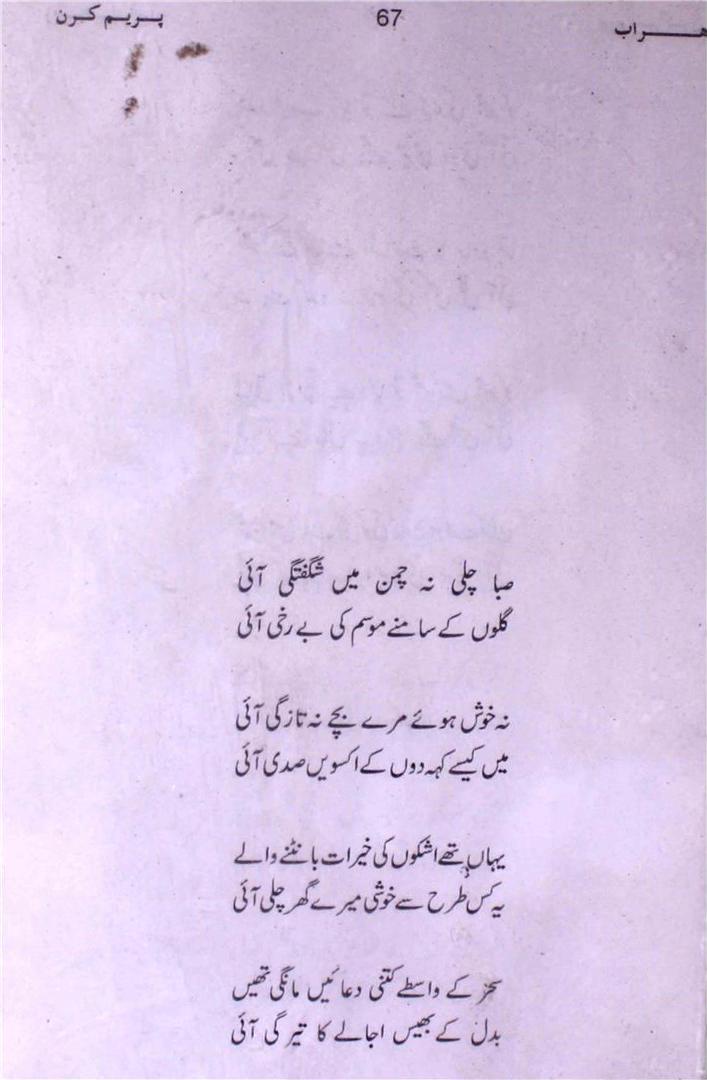 ھراب 67 پریم کرن
صبا چلی نہ چمن میں شگفتگی آئی
گلوں کے سامنے موسم کی بے رخی آئی
نہ خوش ہوئے مرے بچے نہ تازگی آئی
میں کیسے کہہ دوں کے اکسویں صدی آئی
یہاں تھے اشکوں کی خیرات بانٹنے والے
یہ کس طرح سے خوشی میرے گھر چلی آئی
سحر کے واسطے کتنی دعائیں مانگی تھیں
بدل کے بھیس اجالے کا تیرگی آئی